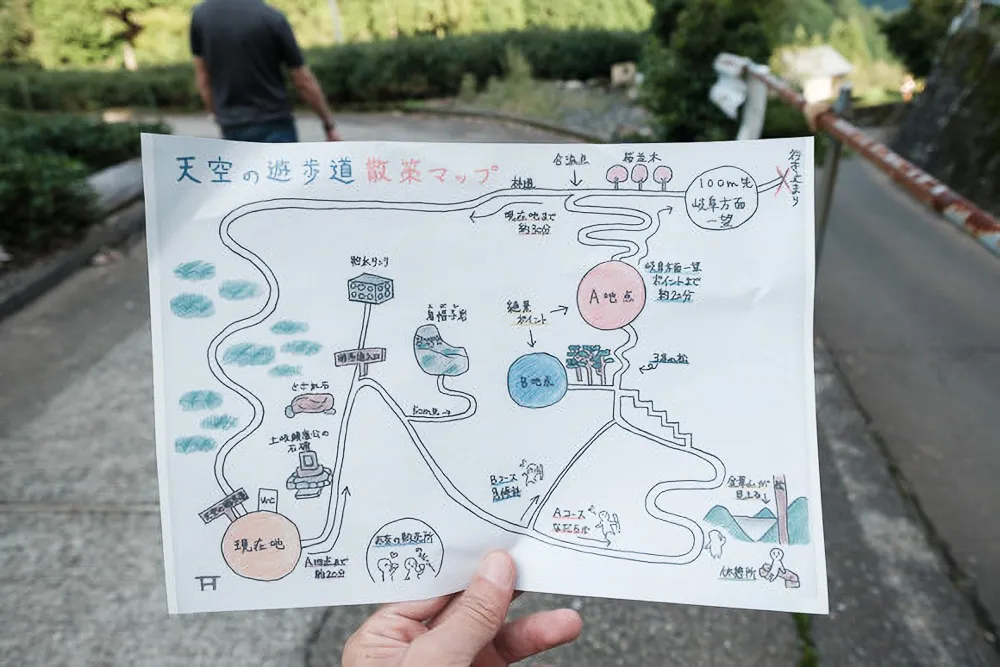 天空の遊歩道 散策マップ
合流点
桜並木
行き止まり
林道
現在地まで
約30分
100m先
岐阜方面
一望
貯水タンク
A地点
岐阜方面一望
ポイントまで
約20分
絶景
ポイント
遊歩道入口
B地点
3連の松
さざれ石
土岐頼遠公の
石碑
Bコース
急傾斜
Aコース
なだらか
見える
天空の遊歩道
WC
現在地
A地点まで
約20分
お茶の販売所
休憩所